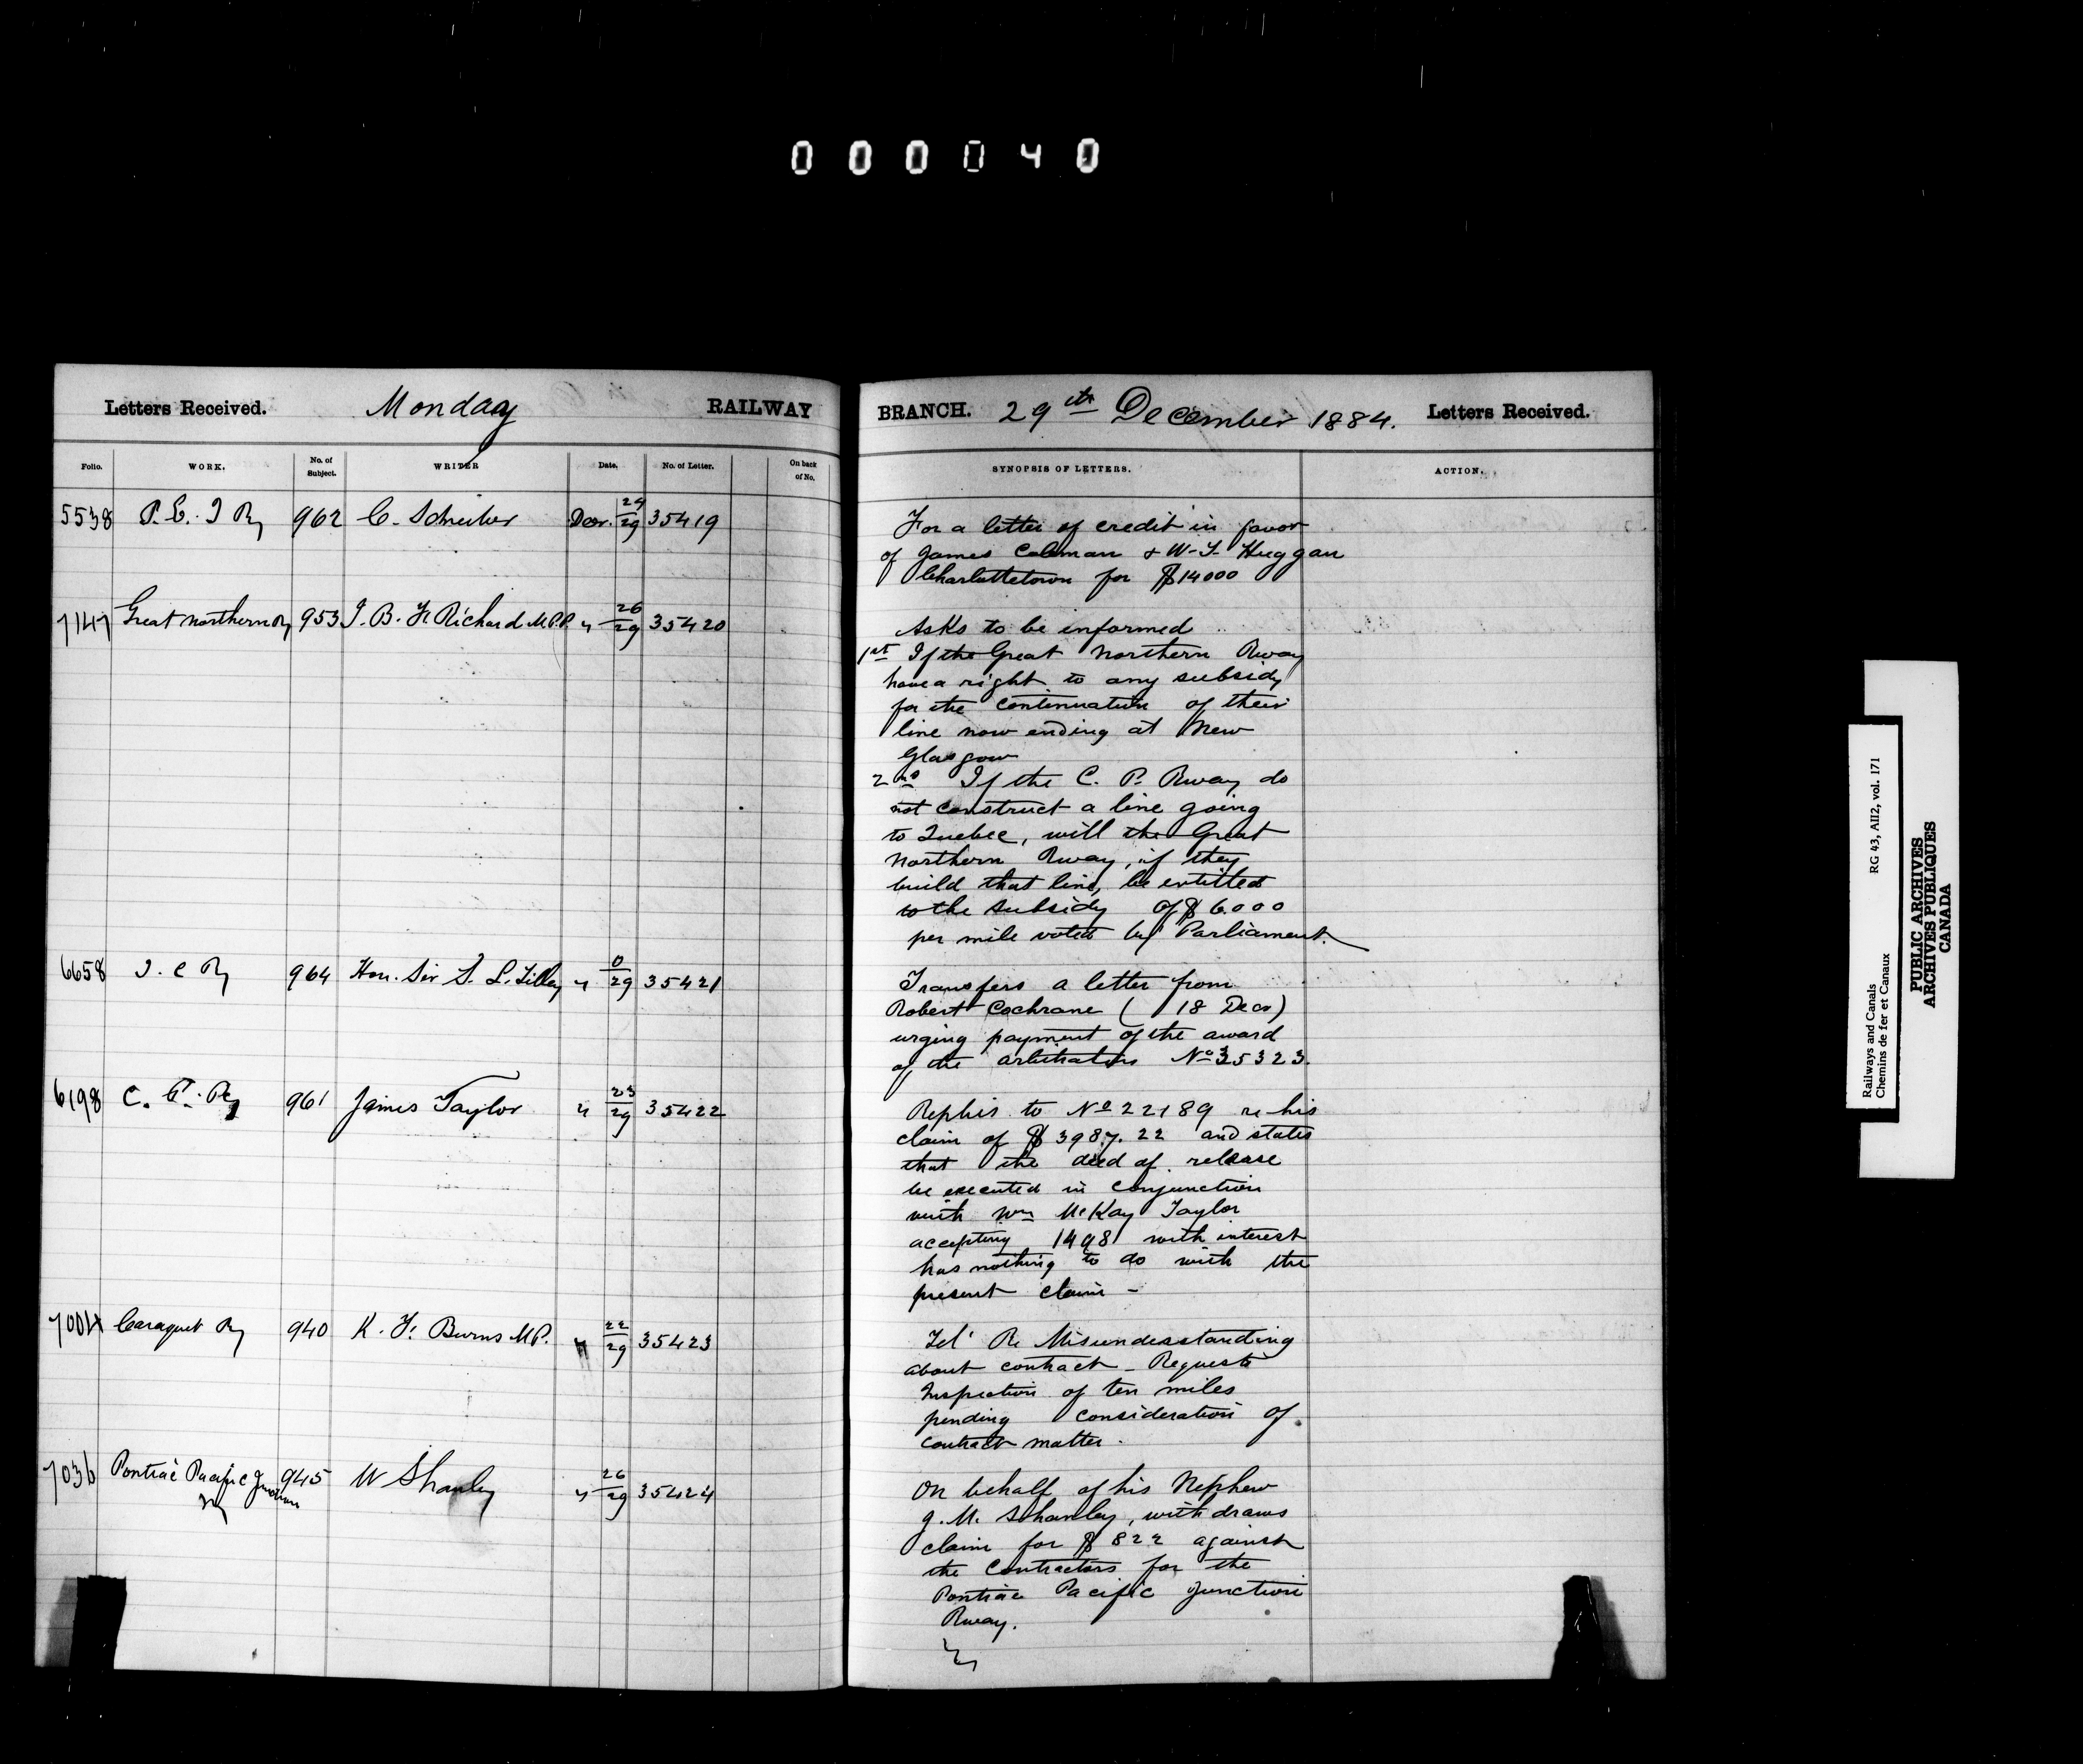 000040
Letters Received. Monday RAILWAY BRANCH. 29th December 1884. Letters Received.
Folio. WORK. No. of Subject. WRITER Date. No. of Letter. On back of No. SYNOPSIS OF LETTERS. ACTION.
5538 P. E. I Ry 962 C. Schreiber Decr. 24/29 35419
For a letter of credit in favor
of James Coleman & W. F. Huggan
Charlottetown for $14000
7147 Great Northern Ry 953 J. B. F. Richard M.P.P. " 26/29 35420
Asks to be informed
1st If the Great Northern Rway
have a right to any subsidy
for the continuation of their
line now ending at New
Glasgow
2nd If the C. P. Rway do
not construct a line going
to Quebec, will the Great
Northern Rway, if they
build that line, be entitled
to the subsidy of $6000
per mile voted by Parliament.
6658 I. C Ry 964 Hon. Sir S. L. Tilley " 0/29 35421
Transfers a letter from
Robert Cochrane ( 18 Decr)
urging payment of the award
of the arbitrators No 35323.
6198 C. P. Ry 961 James Taylor " 23/29 35422
Replies to No 22189 re his
claim of $3987.22 and states
that the deed of release
be executed in conjunction
with Wm McKay Taylor
accepting 1498 with interest
has nothing to do with the
present claim -
7004 Caraquet Ry 940 K. F. Burns M.P. " 22/29 35423
Tel' Re Misunderstanding
about contract - Requests
Inspection of ten miles
pending consideration of
contract matter.
7036 Pontiac Pacific Junction Ry 945 W Shanly " 26/29 35424
On behalf of his Nephew
J. M. Shanley, withdraws
claim for $822 against
the Contractors for the
Pontiac Pacific Junction
Rway.
Railways and Canals RG 43, AII2, vol. 171
Chemins de fer et Canaux
PUBLIC ARCHIVES
ARCHIVES PUBLIQUES
CANADA